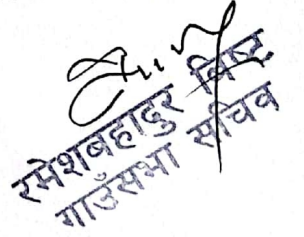 रमेशबहादुर विष्ट
गाउँसभा सचिव